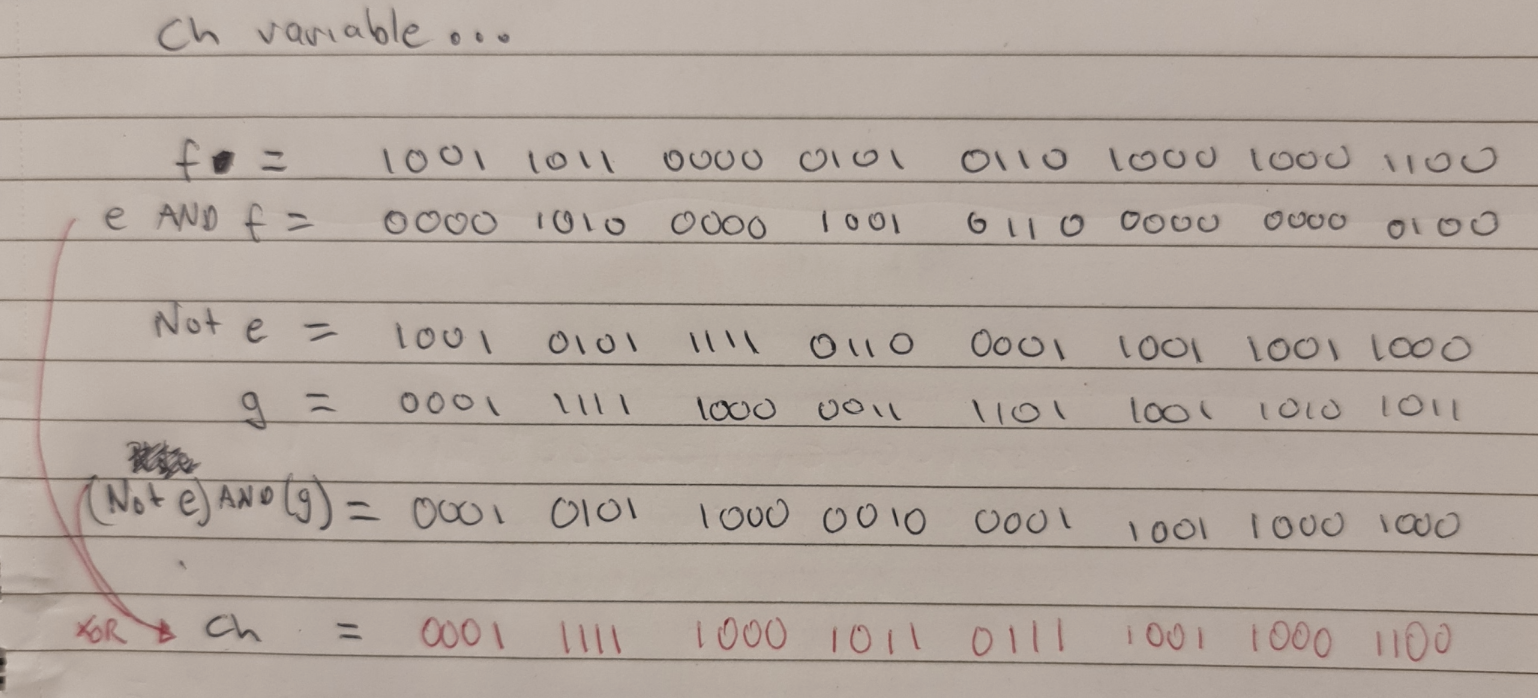 Ch variable...
f = 1001 1011 0000 0101 0110 1000 1000 1100
e AND f = 0000 1010 0000 1001 0110 0000 0000 0100
Not e = 1001 0101 1111 0110 0001 1001 1001 1000
g = 0001 1111 1000 0011 1101 1001 1010 1011
(Not e) AND (g) = 0001 0101 1000 0010 0001 1001 1000 1000
XOR Ch = 0001 1111 1000 1011 0111 1001 1000 1100